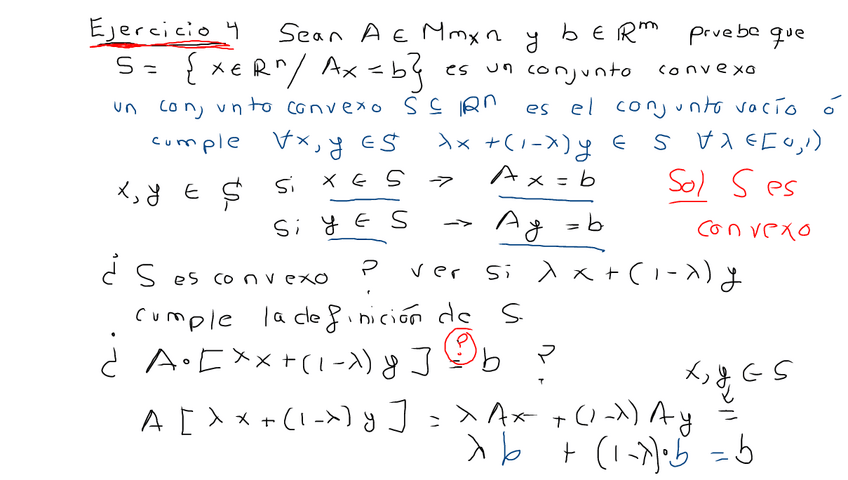 Ejercicio 4 Sean A ∈ Mmxn y b ∈ ℝᵐ prueba que
S = { x ∈ ℝⁿ / Ax = b } es un conjunto convexo
un conjunto convexo S ⊆ ℝⁿ es el conjunto vacío ó
cumple ∀x, y ∈ S λx + (1-λ)y ∈ S ∀λ ∈ [0,1)
x, y ∈ S si x ∈ S → Ax = b Sol S es
si y ∈ S → Ay = b convexo
¿ S es convexo ? ver si λx + (1-λ)y
cumple la definición de S
¿ A·[λx + (1-λ)y] = b ?
?
x, y ∈ S
A[λx + (1-λ)y] = λAx + (1-λ)Ay =
λb + (1-λ)·b = b